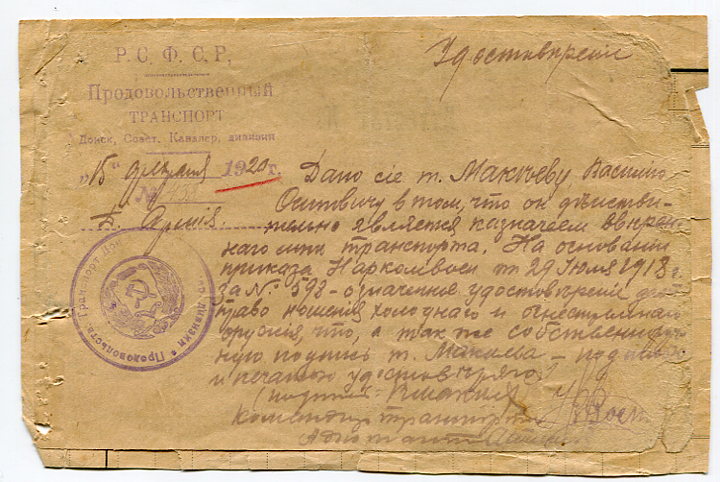 Удостоверение
Р. С. Ф. С. Р.
Продовольственный
ТРАНСПОРТ
Донск. Совет. Кавалер. дивизии
„15" февраля 1920 г.
№
Армия.
Дано сіе т. Макѣеву, Василию
в том, что он дѣистви-
тельно является казначеем
транспорта. На основании
приказа Наркомвоен от 29 Июля 1918 г.
за № 593 - означенное удостоверение
право ношения холоднаго и огнестрельнаго
оружия, что, а так же собственноруч-
ную подпись т. Макеева -
и печатью удостоверяю
(подпись
Комендант транспорта
Адъютант
Продовольств. Транспорт дивизии